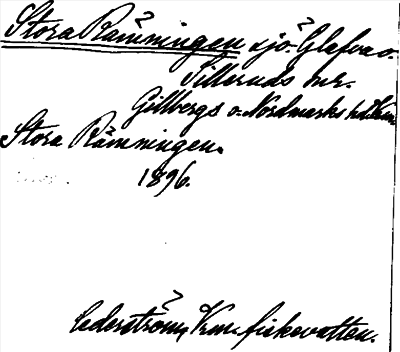 Stora Rämmingen sjö. Glafva o.
Silleruds snr.
Gillbergs o. Nordmarks hd
Stora Rämmingen.
1896.
Cederström, Vrm. fiskevatten.